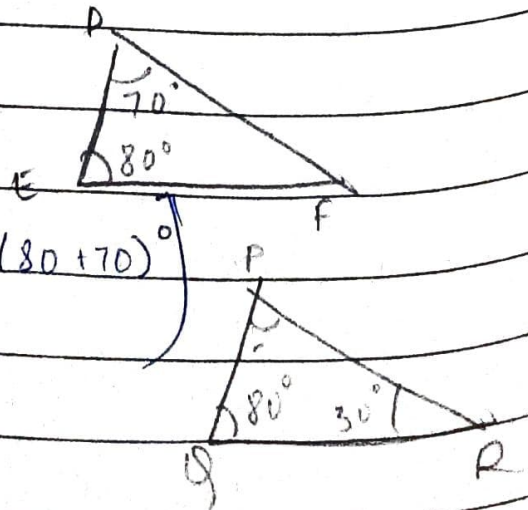 D
70°
80°
E
F
(80+70)°
P
80°
30°
Q
R